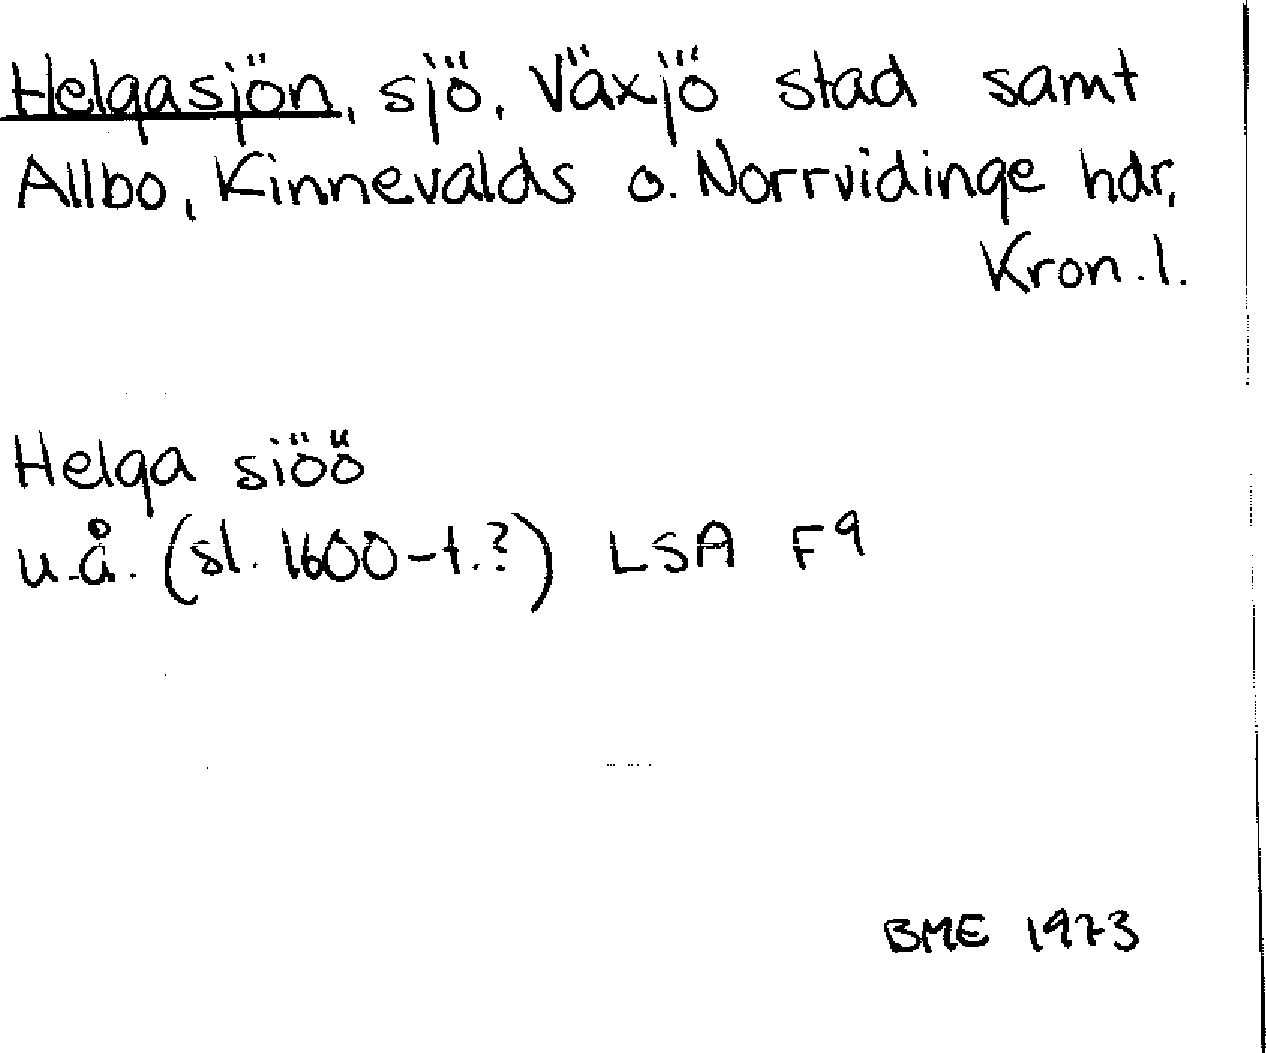 Helgasjön, sjö, Växjö stad samt
Allbo, Kinnevalds o. Norrvidinge hdr,
Kron. l.
Helga siöö
u.å. (sl. 1600-t.?) LSA F9
BME 1973